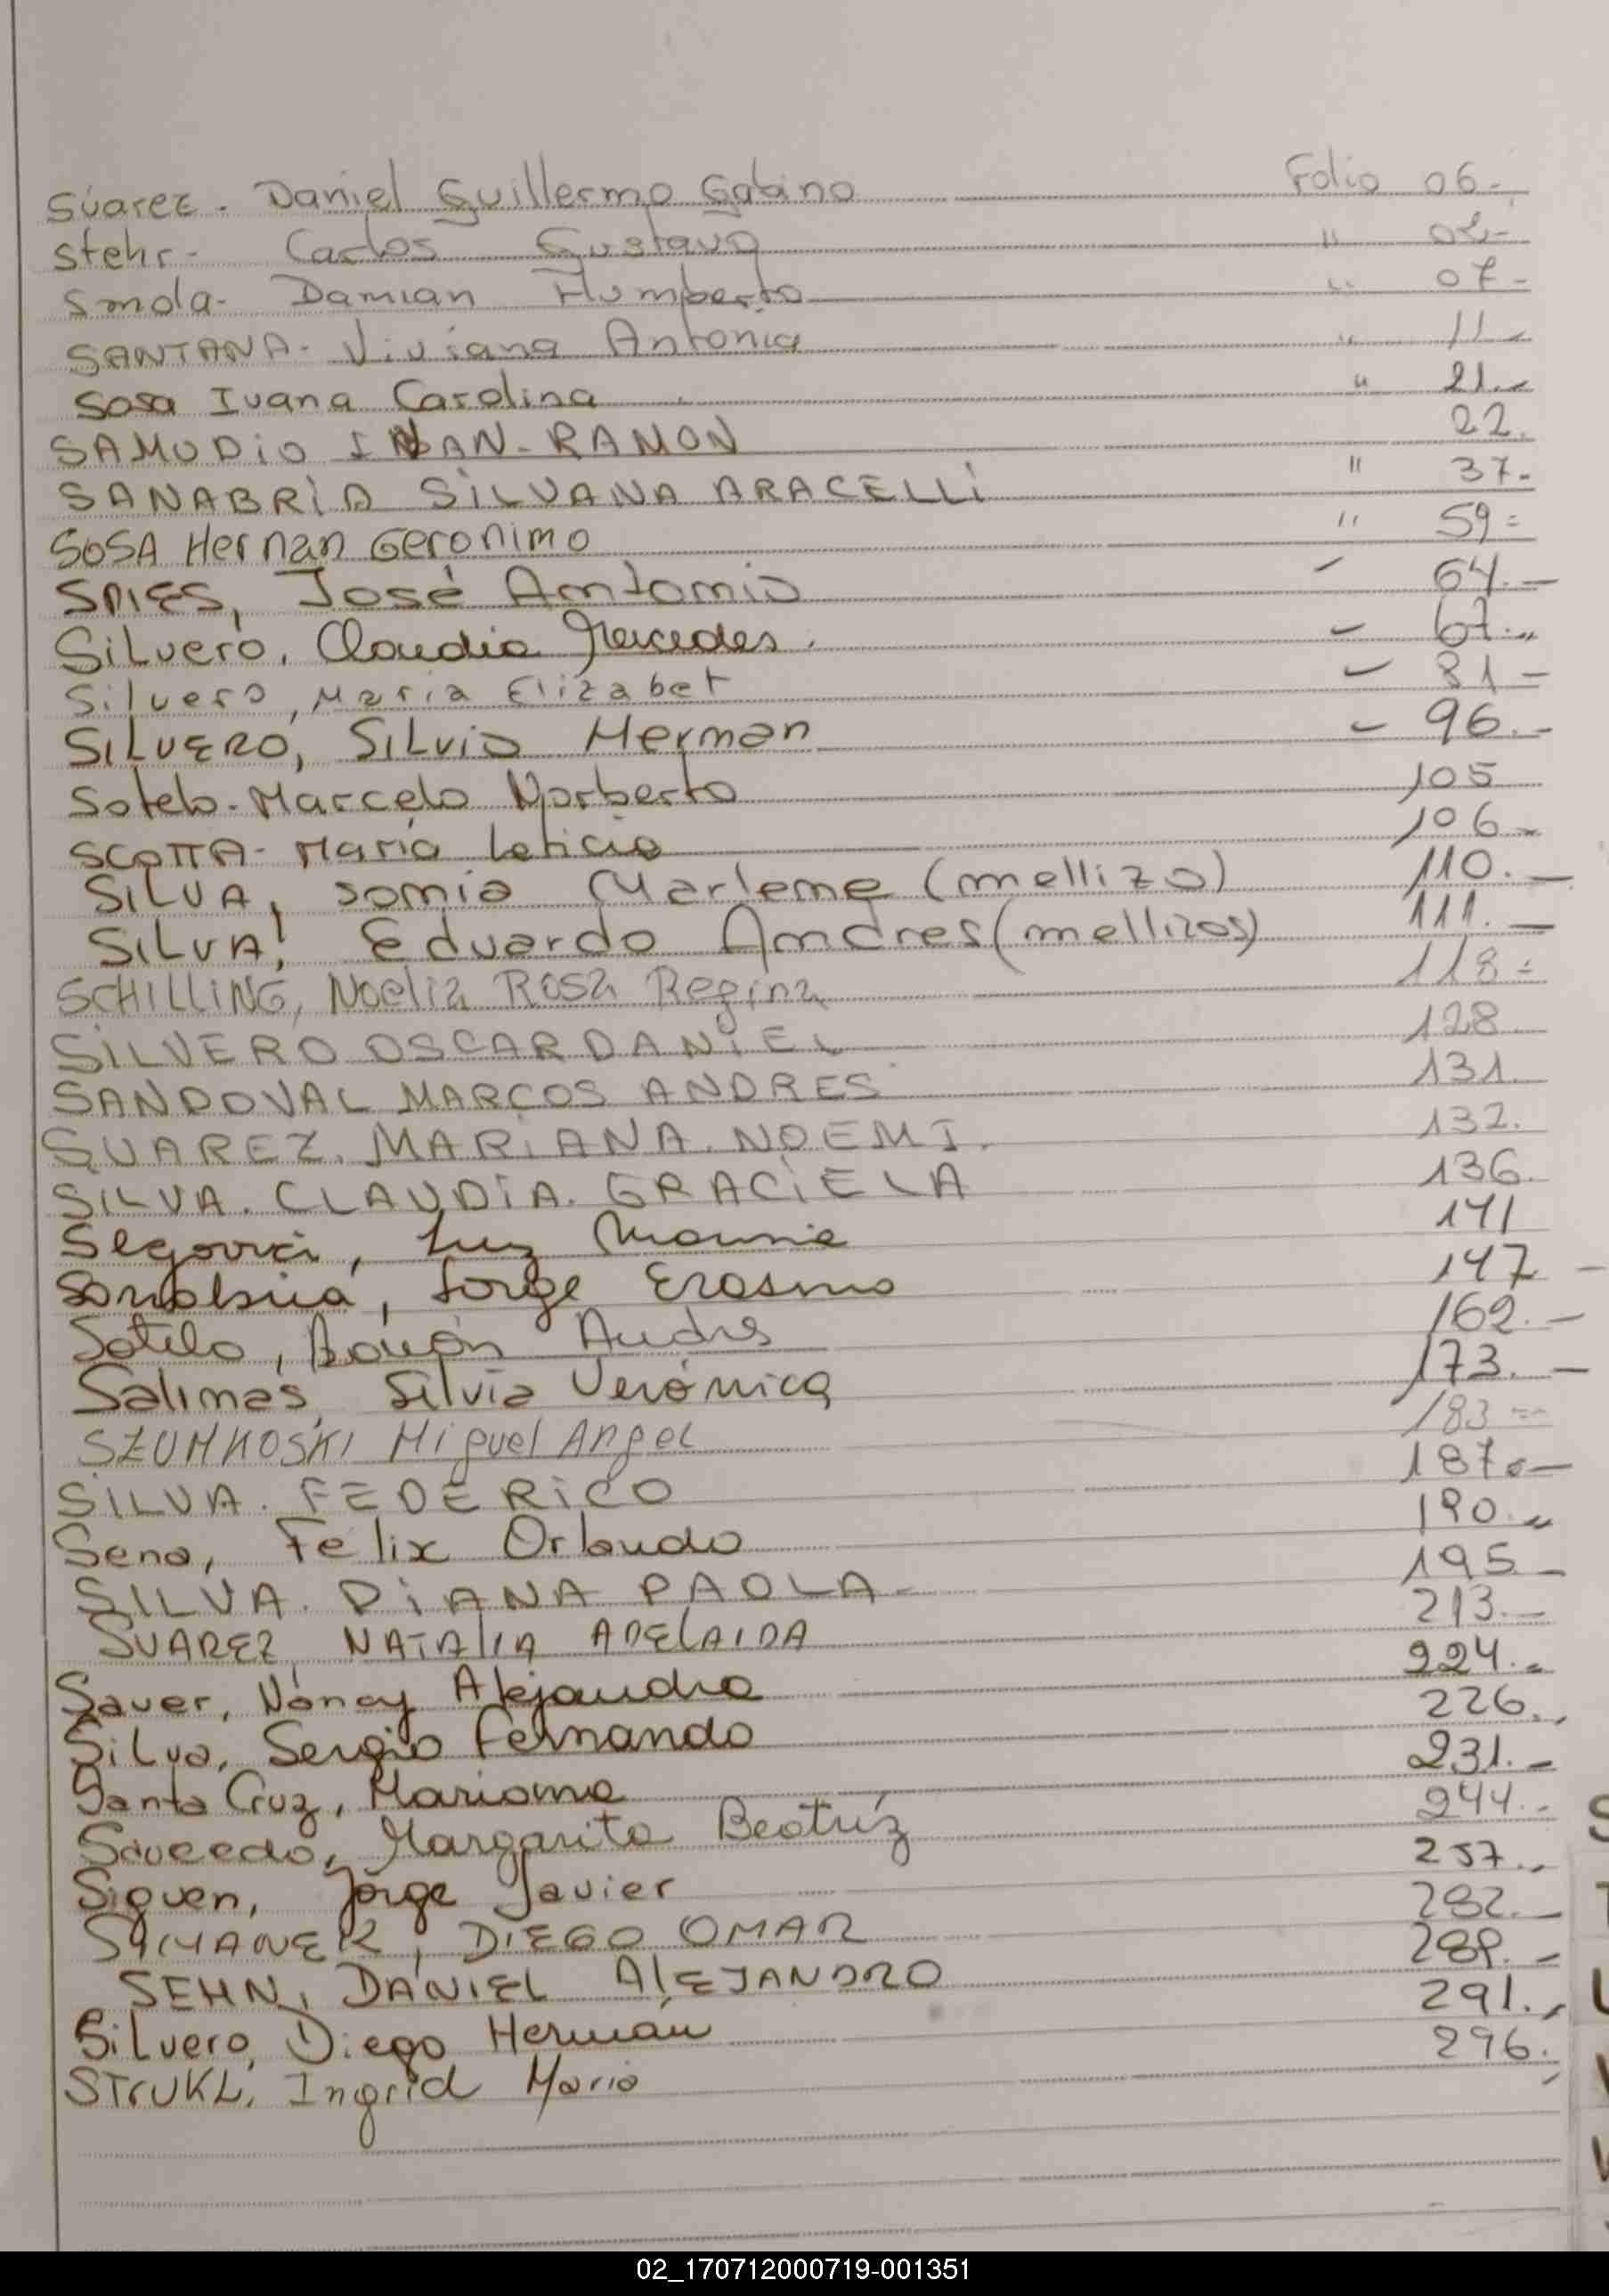 Súarez. Daniel Guillermo Gabino Folio 06-
Stehr- Carlos Gustavo " 02-
Smola- Damian Humberto " 07-
SANTANA- Viviana Antonia " 11-
Sosa Ivana Carolina " 21.-
SAMUDIO IVAN-RAMON 22.
SANABRIA SILVANA ARACELLI " 37-
SOSA Hernan Geronimo " 59=
SPIES, José Antonio - 64.-
Silvero, Claudia Mercedes. - 67.,,
Silvero, Maria Elizabet - 81-
SILVERO, Silvio Hernan - 96.-
Sotelo-Marcelo Norberto 105
SCOTTA- María Leticia 106-
SILVA, Sonia Marlene (mellizo) 110.-
SILVA, Eduardo Andres (mellizos) 111.-
SCHILLING, Noelia Rosa Regina 118=
SILVERO OSCAR DANIEL 128
SANDOVAL MARCOS ANDRES 131.
SUAREZ. MARIANA. NOEMI. 132.
SILVA. CLAUDIA. GRACIELA 136.
Segovia, Luz Marina 141
Sanabria, Jorge Erasmo 147-
Sotelo, Ramón Andrs 162.-
Salinas, Silvia Verónica 173.-
SZUMKOSKI Miguel Angel 183=
SILVA. FEDERICO 187.-
Sena, Félix Orlando 190.,,
SILVA. DIANA PAOLA- 195-
SUAREZ NATALIA ADELAIDA 213.-
Sauer, Nancy Alejandra 224.-
Silva, Sergio Fernando 226.,
Santa Cruz, Mariana 231.-
Saucedo, Margarita Beatríz 244.-
Siguen, Jorge Javier 257.,
DIEGO OMAR 282.-
SEHN, DANIEL ALEJANDRO 289.-
Silvero, Diego Hernán 291.,
STRUKL, Ingrid Maria 296.
02_170712000719-001351